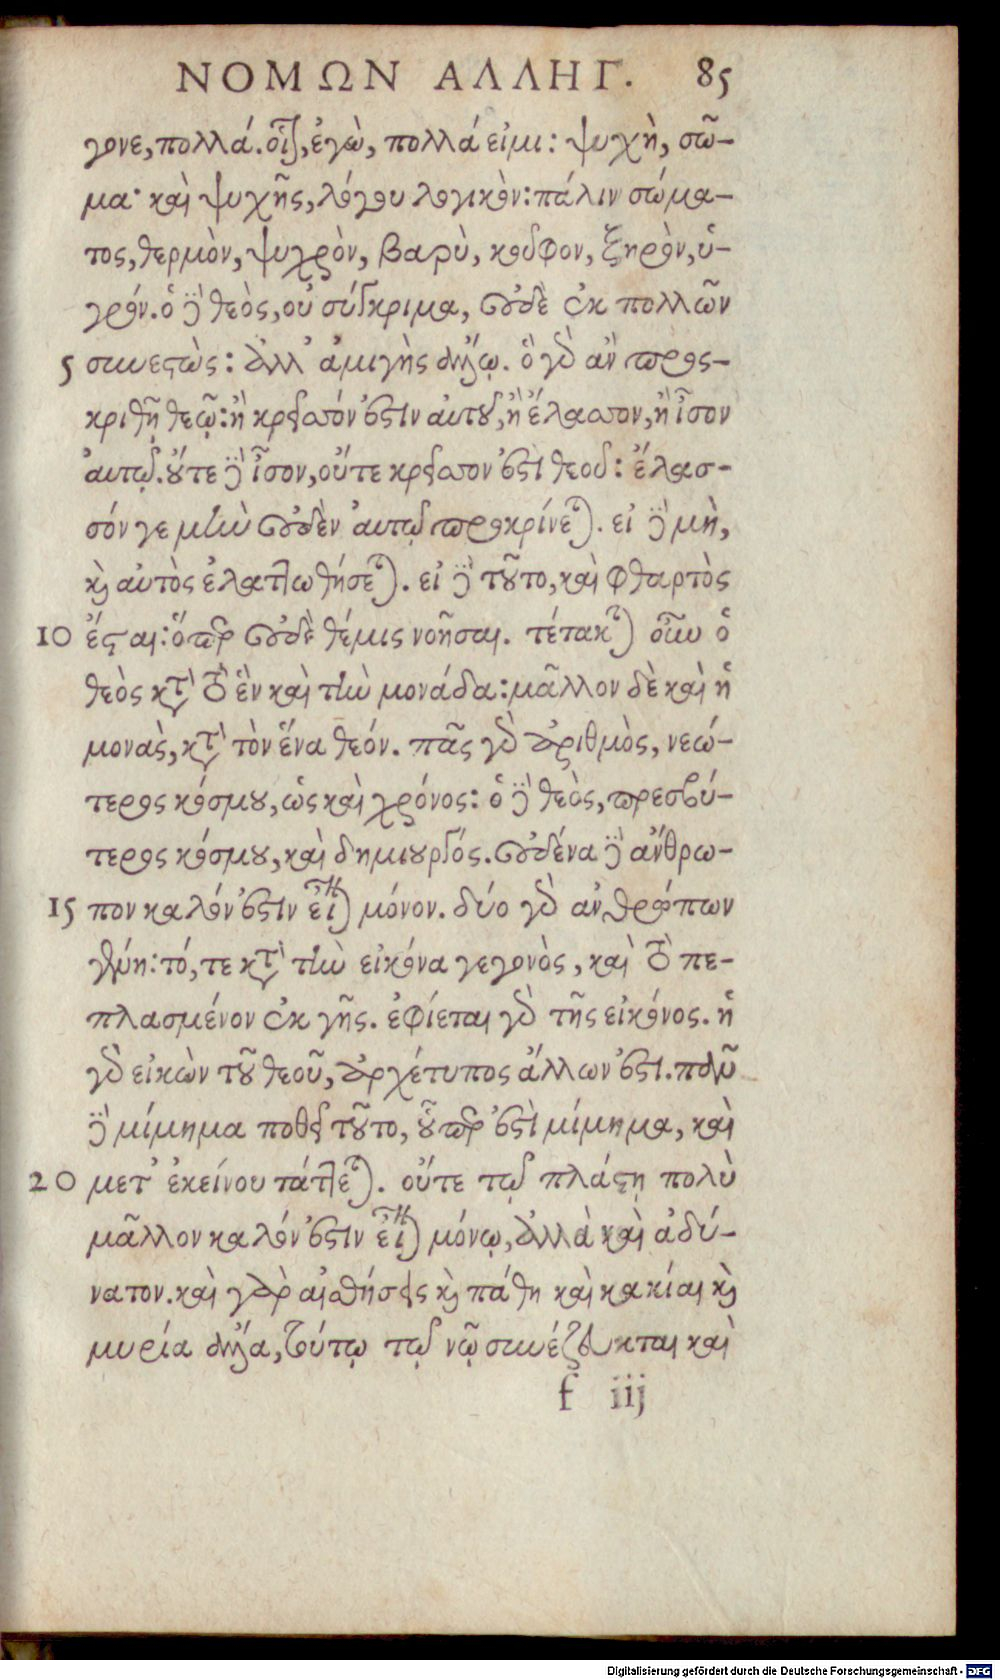 ΝΟΜΩΝ ΑΛΛΗΓ. 85
γονε, πολλά. οἷον, ἐγὼ, πολλά εἰμι: ψυχὴ, σῶ-
μα· καὶ ψυχῆς, λόγου λογικόν: πάλιν σώμα-
τος, θερμὸν, ψυχρὸν, βαρὺ, κοῦφον, ξηρὸν, ὑ-
γρόν. ὁ δὲ θεὸς, οὐ σύγκριμα, οὐδὲ ἐκ πολλῶν
5 συνεστὼς: ἀλλ' ἀμιγὴς ἄλλῳ. ὃ γὰρ ἂν προς-
κριθῇ θεῷ: ἢ κρεῖσσόν ἐστιν αὐτοῦ, ἢ ἔλασσον, ἢ ἶσον
αὐτῷ. οὔτε δὲ ἶσον, οὔτε κρεῖσσον ἐστὶ θεοῦ: ἔλασ-
σόν γε μὴν οὐδὲν αὐτῷ προσκρίνεται. εἰ δὲ μὴ,
καὶ αὐτὸς ἐλαττωθήσεται. εἰ δὲ τοῦτο, καὶ φθαρτὸς
10 ἔσται: ὅπερ οὐδὲ θέμις νοῆσαι. τέτακται οὖν ὁ
θεὸς κατὰ τὸ ἓν καὶ τὴν μονάδα: μᾶλλον δὲ καὶ ἡ
μονὰς, κατὰ τὸν ἕνα θεόν. πᾶς γὰρ ἀριθμὸς, νεώ-
τερος κόσμου, ὡς καὶ χρόνος: ὁ δὲ θεὸς, πρεσβύ-
τερος κόσμου, καὶ δημιουργός. οὐδένα δὲ ἄνθρω-
15 πον καλόν ἐστιν εἶναι μόνον. δύο γὰρ ἀνθρώπων
γένη: τό, τε κατὰ τὴν εἰκόνα γεγονὸς, καὶ τὸ πε-
πλασμένον ἐκ γῆς. ἐφίεται γὰρ τῆς εἰκόνος. ἡ
γὰρ εἰκὼν τοῦ θεοῦ, ἀρχέτυπος ἄλλων ἐστι. πᾶν
δὲ μίμημα ποθεῖ τοῦτο, οὗπερ ἐστὶ μίμημα, καὶ
20 μετ' ἐκείνου τάττεται. οὔτε τῷ πλάστῃ πολὺ
μᾶλλον καλόν ἐστιν εἶναι μόνῳ, ἀλλὰ καὶ ἀδύ-
νατον. καὶ γὰρ αἰσθήσεις καὶ πάθη καὶ κακίαι καὶ
μυρία ἄλλα, τούτῳ τῷ νῷ συνέζευκται καὶ
f iij
Digitalisierung gefördert durch die Deutsche Forschungsgemeinschaft - DFG